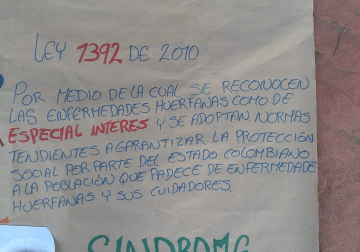 LEY 1392 DE 2010
POR MEDIO DE LA CUAL SE RECONOCEN
LAS ENFERMEDADES HUERFANAS COMO DE
ESPECIAL INTERES Y SE ADOPTAN NORMAS
TENDIENTES A GARANTIZAR LA PROTECCIÓN
SOCIAL POR PARTE DEL ESTADO COLOMBIANO
A LA POBLACIÓN QUE PADECE DE ENFERMEDADE
HUERFANAS Y SUS CUIDADORES.
SINDROME